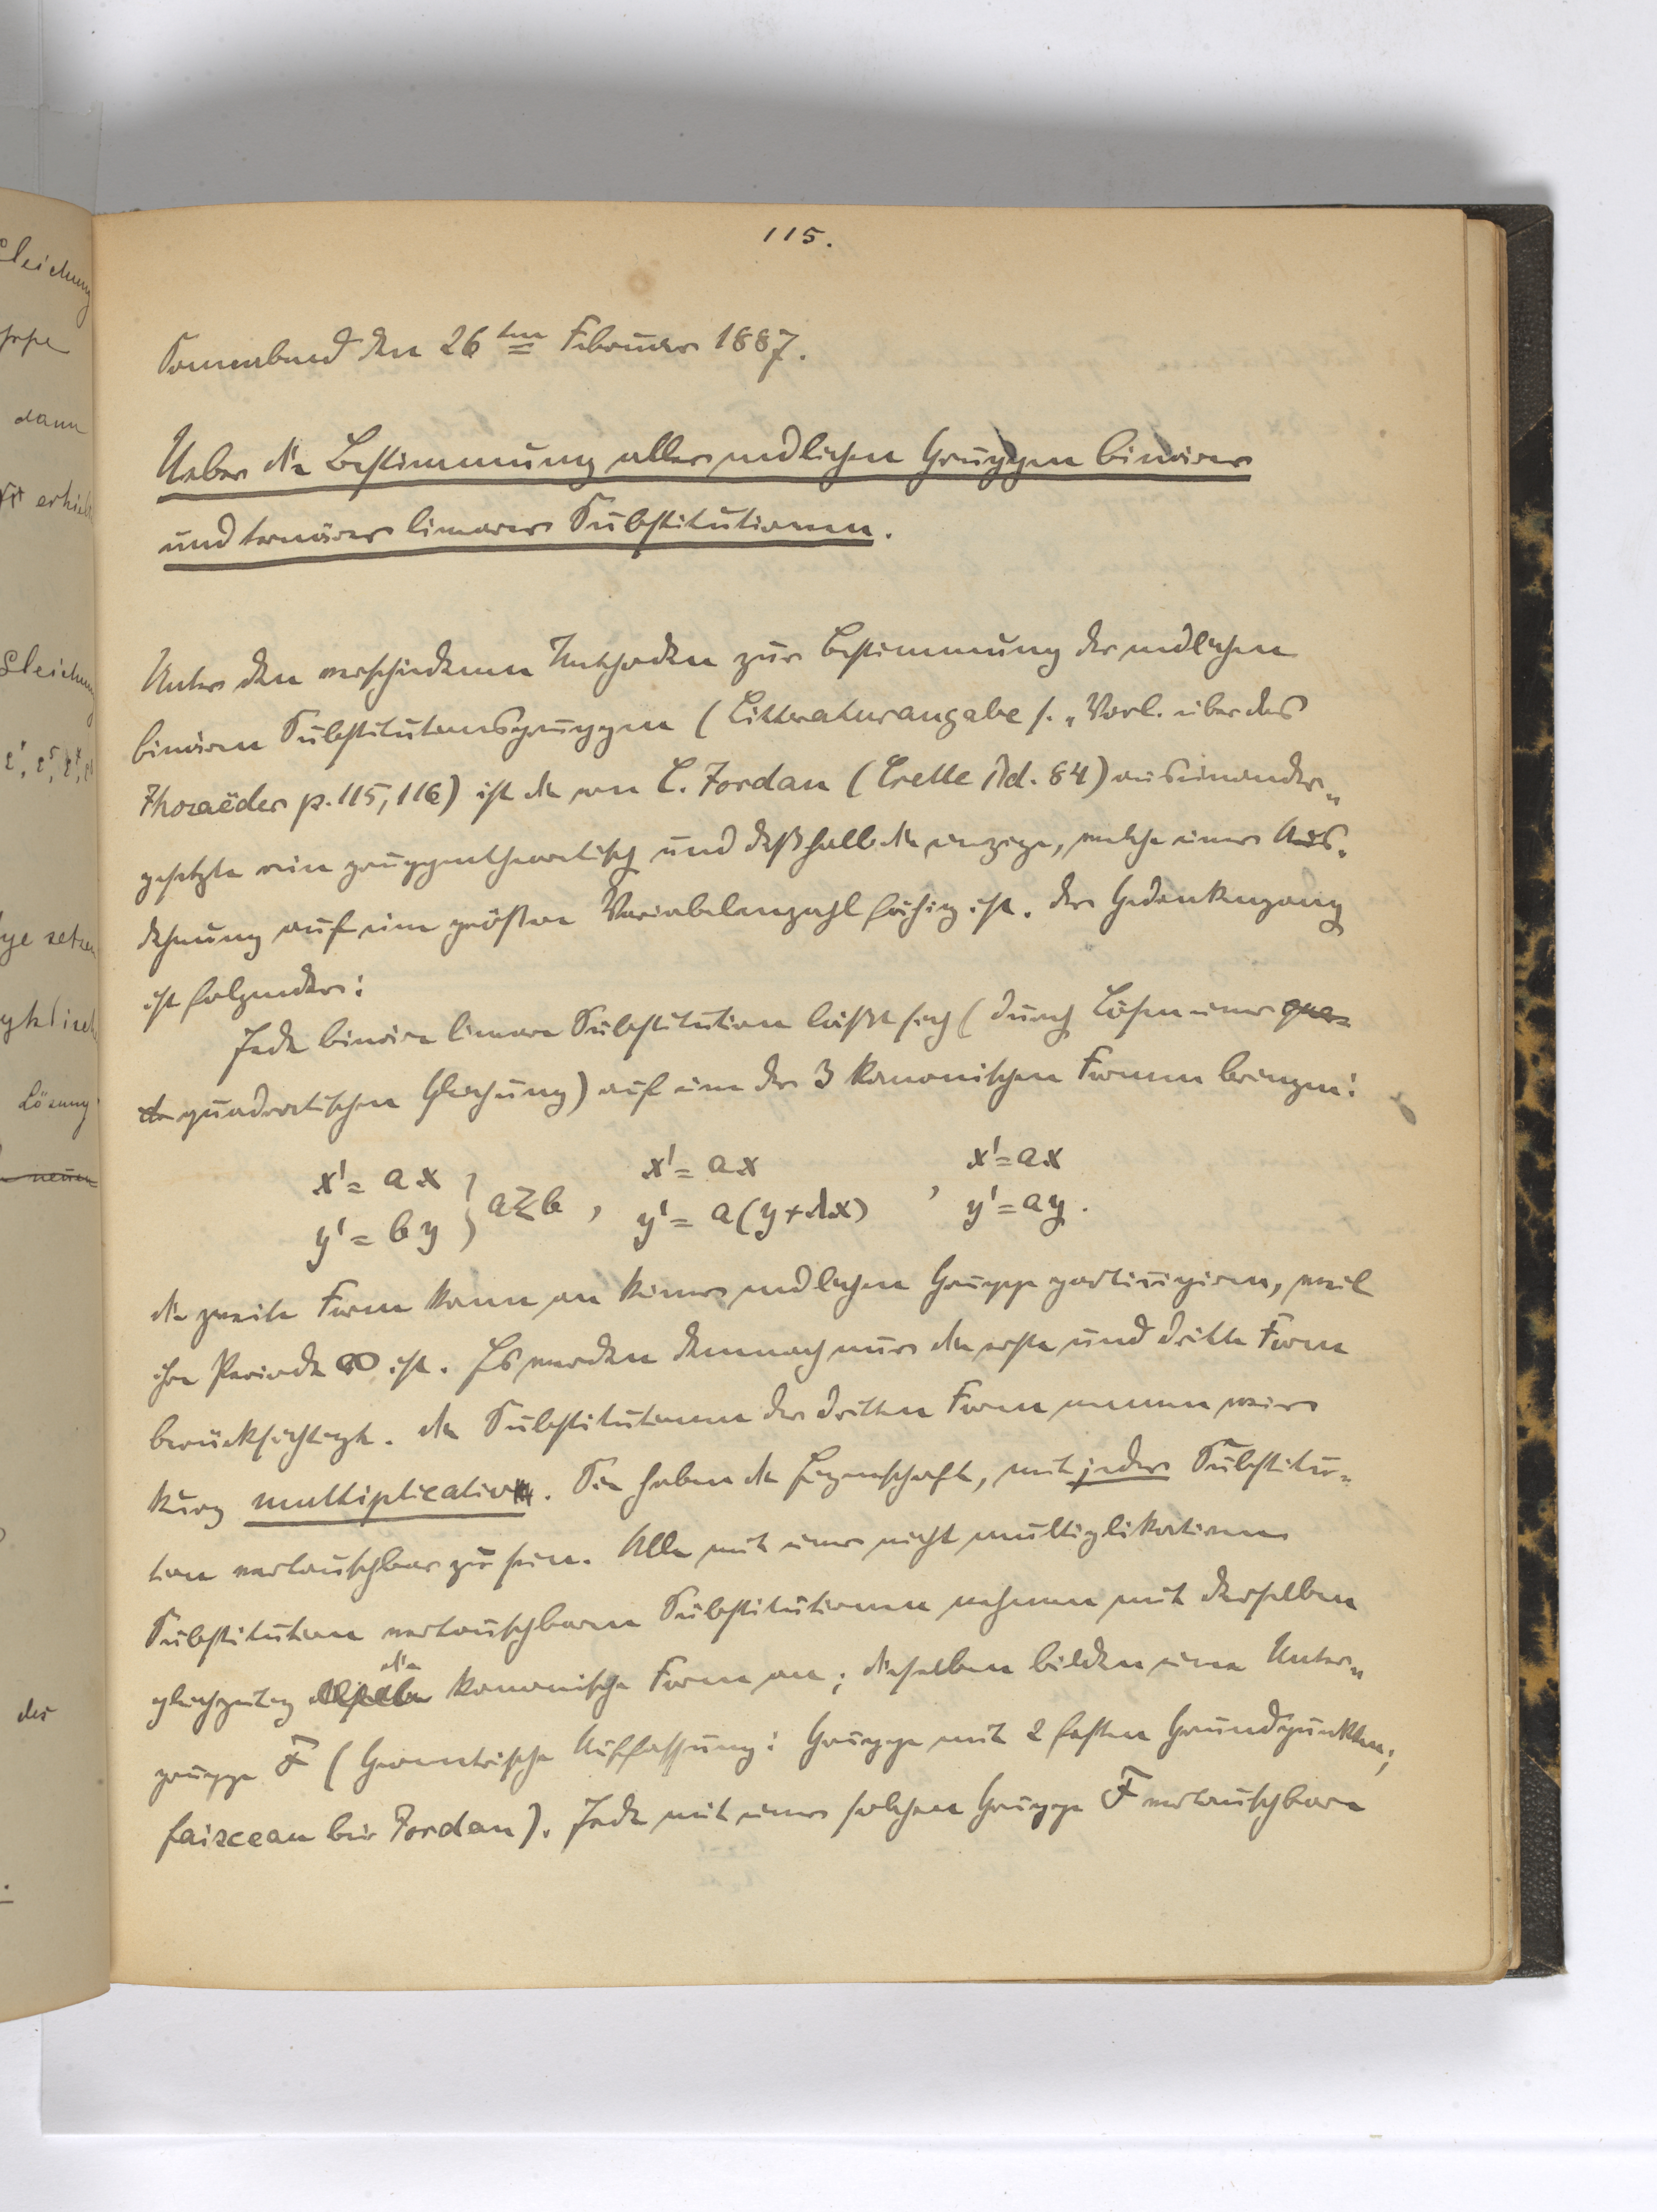 115.
Sonnabend den 26ten Februar 1887.
Ueber die Bestimmung aller endlichen Gruppen binärer
und ternärer linearer Substitutionen.
Unter den verschiedenen Methoden zur Bestimmung der endlichen
binären Substitutionsgruppen (Litteraturangabe s. „Vorl. über das
Ikosaëder p. 115, 116) ist die von C. Jordan (Crelle Bd. 84) auseinander„
gesetzte rein gruppentheoretisch und deßhalb die einzige, welche einer Aus„
dehnung auf eine größere Variabelenzahl fähig ist. Der Gedankengang
ist folgender:
Jede binäre lineare Substitution läßt sich (durch Lösen einer qua=
quadratischen Gleichung) auf eine der 3 kanonischen Formen bringen:
x' = ax
y' = by } a≷b , x' = ax
y' = a(y+λx) , x' = ax
y' = ay.
Die zweite Form kann an keiner endlichen Gruppe participiren, weil
ihre Periode ∞ ist. Es werden demnach nur die erste und dritte Form
berücksichtigt. Die Substitutionen der dritten Form nennen wir
kurz multiplicativ. Sie haben die Eigenschaft, mit jeder Substitu=
tion vertauschbar zu sein. Alle mit einer nicht multiplikativen
Substitution vertauschbaren Substitutionen nehmen mit derselben
gleichzeitig die kanonische Form an; dieselben bilden eine Unter„
gruppe F (Geometrische Auffassung: Gruppe mit 2 festen Grundpunkten;
faisceau bei Jordan). Jede mit einer solchen Gruppe F vertauschbare
Gleichung
dann
erhielt
Gleichung
setzen
Lösung
neuen
des